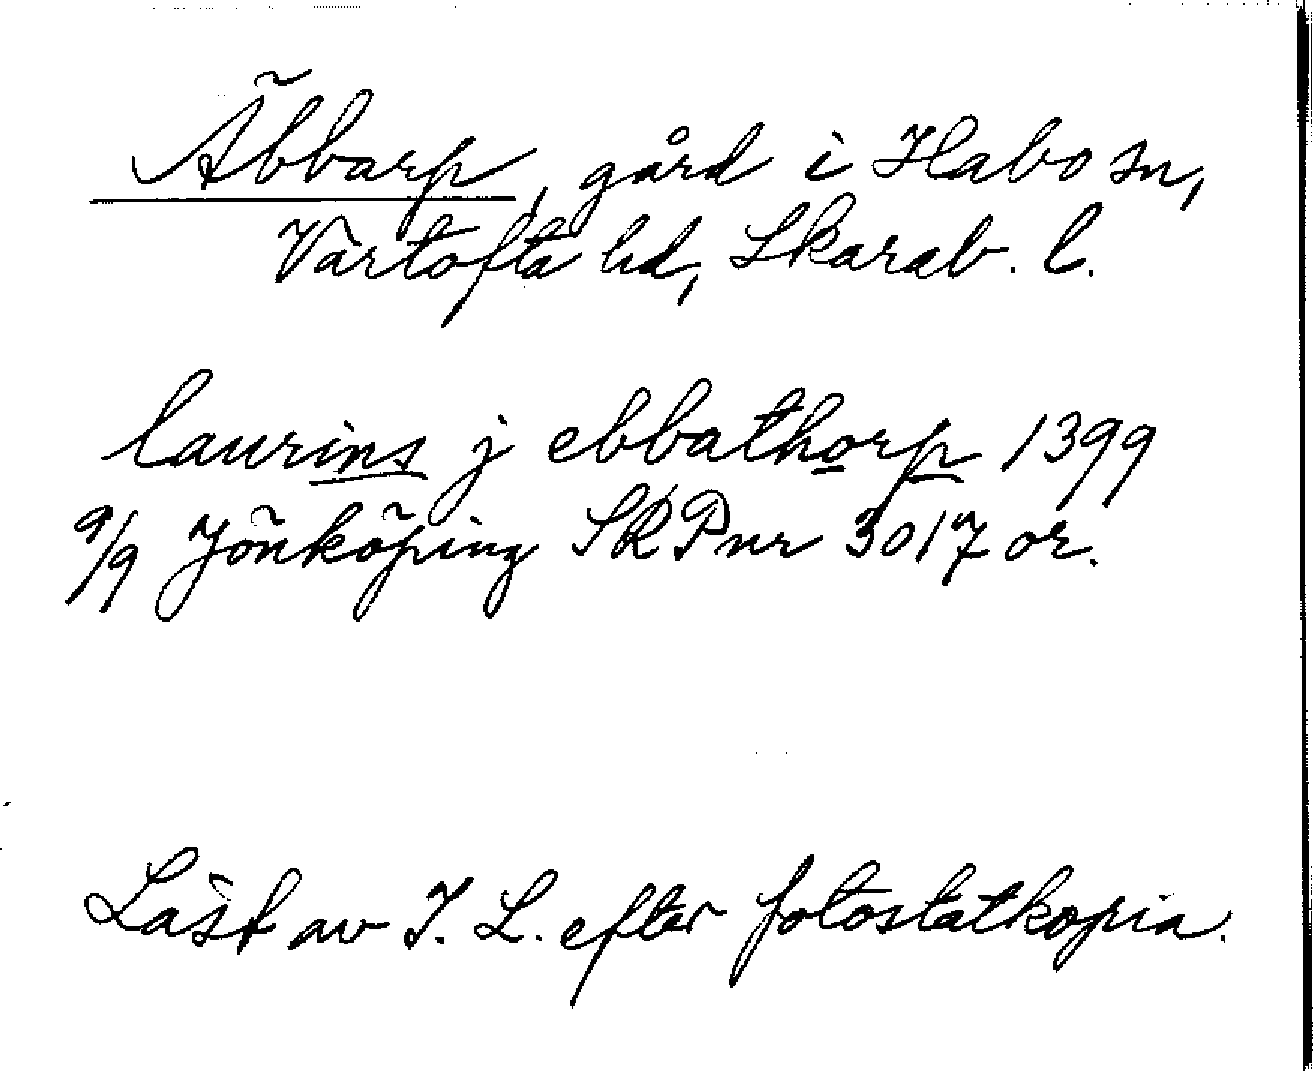 Äbbarp, gård i Habo sn,
Vartofta hd, Skarab. l.
laurins j ebbathorp 1399
9/9 Jönköping SRP nr 3017 or.
Läst av I. L. efter fotostatkopia.